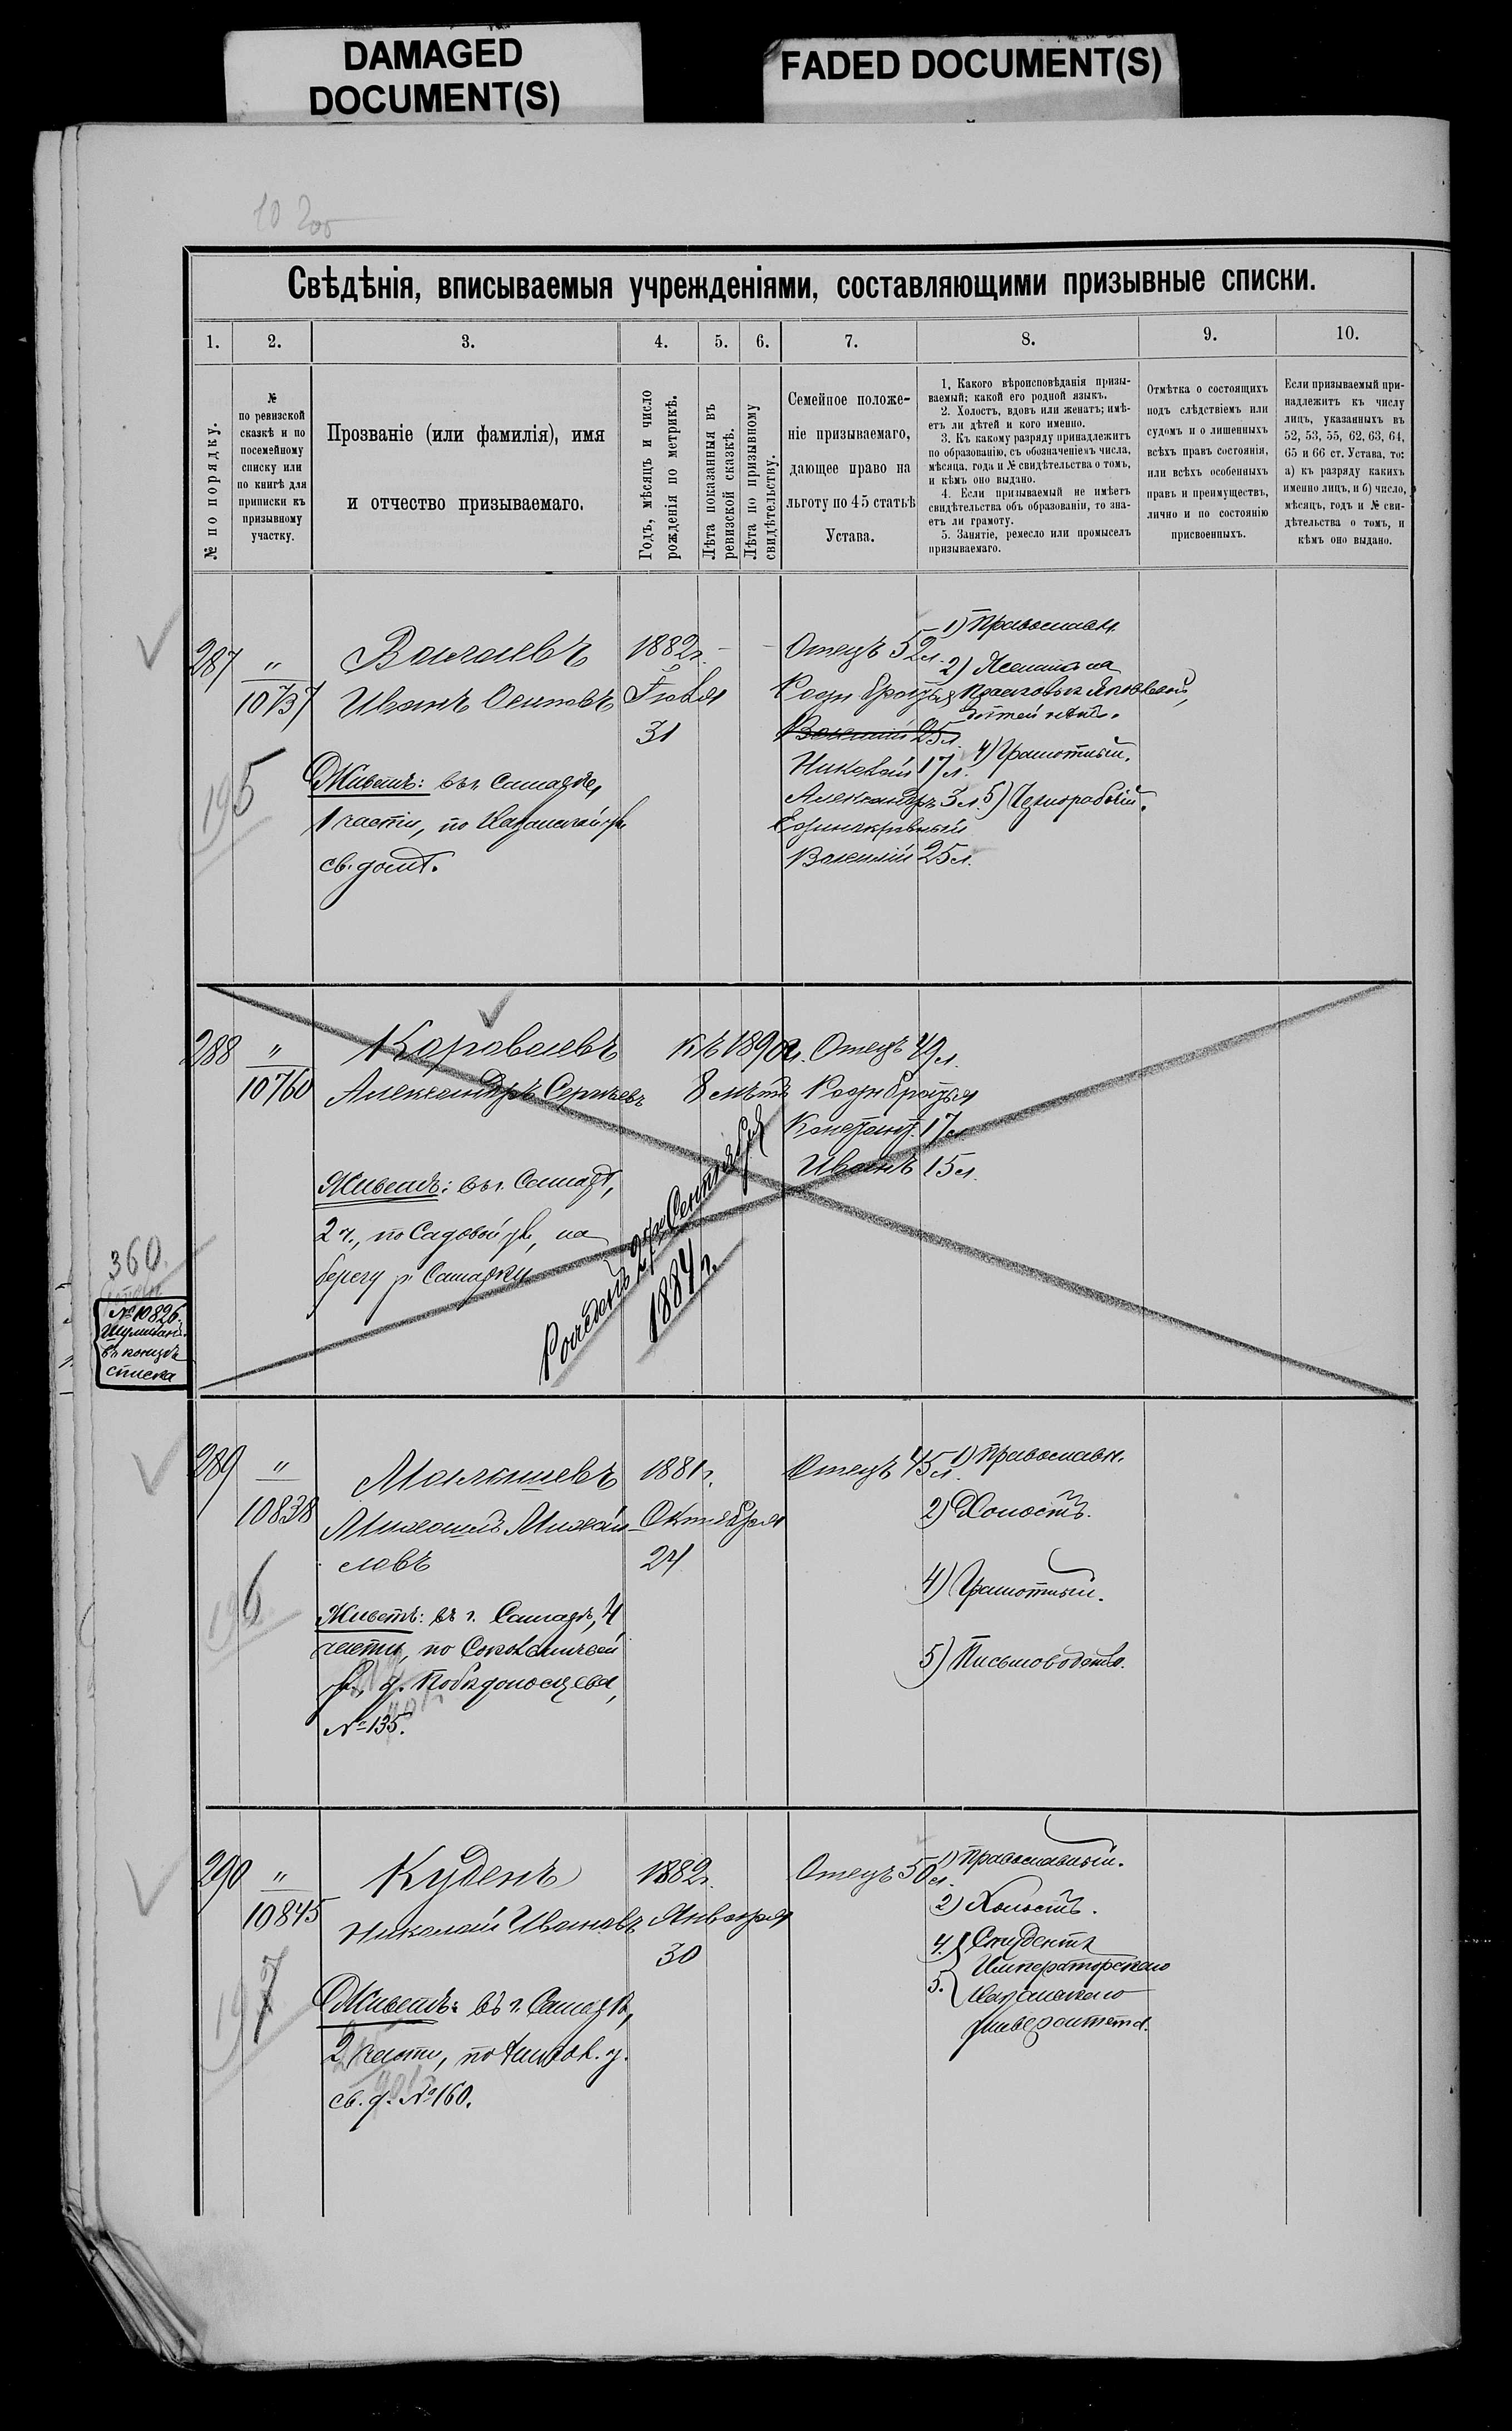 DAMAGED
DOCUMENT(S)
FADED DOCUMENT(S)
Свѣдѣнія, вписываемыя учрежденіями, составляющими призывные списки.
1.
2.
3.
4.
5.
6.
7.
8.
9.
10.
№ по порядку.
№
по ревизской
сказкѣ и по
посемейному
списку или
по книгѣ для
приписки къ
призывному
участку.
Прозваніе (или фамилія), имя
и отчество призываемаго.
Годъ, мѣсяцъ и число
рожденія по метрикѣ.
Лѣта показанныя въ
ревизской сказкѣ.
Лѣта по призывному
свидѣтельству.
Семейное положе-
ніе призываемаго,
дающее право на
льготу по 45 статьѣ
Устава.
1. Какого вѣроисповѣданія призы-
ваемый; какой его родной языкъ.
2. Холостъ, вдовъ или женатъ; имѣ-
етъ ли дѣтей и кого именно.
3. Къ какому разряду принадлежитъ
по образованію, съ обозначеніемъ числа,
мѣсяца, года и № свидѣтельства о томъ,
и кѣмъ оно выдано.
4. Если призываемый не имѣетъ
свидѣтельства объ образованіи, то зна-
етъ ли грамоту.
5. Занятіе, ремесло или промыселъ
призываемаго.
Отмѣтка о состоящихъ
подъ слѣдствіемъ или
судомъ и о лишенныхъ
всѣхъ правъ состоянія,
или всѣхъ особенныхъ
правъ и преимуществъ,
лично и по состоянію
присвоенныхъ.
Если призываемый при-
надлежитъ къ числу
лицъ, указанныхъ въ
52, 53, 55, 62, 63, 64,
65 и 66 ст. Устава, то:
а) къ разряду какихъ
именно лицъ, и б) число,
мѣсяцъ, годъ и № сви-
дѣтельства о томъ, и
кѣмъ оно выдано.
287
"
10737
195
Иванъ Осиповъ
Живетъ: въ г. Самарѣ,
1 части, по Казанской ул.
св. домѣ.
1882 г.
Іюля
31
Отецъ 52 л.
Родн братья
Василій 25 л.
Николай 17 л.
Александръ 3 л.
Единокровный
Василій 25 л.
1) Православн.
2) Женатъ на
дѣтей нѣтъ.
4) Грамотный.
5) Чернорабочій.
288
"
10760
Короваевъ
Александръ Сергѣевъ
Живетъ: въ г. Самарѣ,
2 ч., по Садовой ул., на
берегу р. Самарки
къ 1890 г.
8 лѣтъ
Сентября
1884 г.
Отецъ 49 л.
Родн братья
Констант. 17 л.
Иванъ 15 л.
360.
№ 10826
въ концѣ
списка
289
"
10838
196
Малышевъ
Михаилъ Михай-
ловъ
Живетъ: въ г. Самарѣ, 4
части, по Соколничьей
ул., д. Побѣдоносцева,
№ 135.
1881 г.
Октября
24
Отецъ 45 л.
1) Православн.
2) Холостъ.
4) Грамотный.
5) Письмоводство.
290
"
10845
197
Куденъ
Николай Ивановъ
Живетъ: въ г. Самарѣ,
2 части,
св. д. № 160.
1882 г.
Января
30
Отецъ 50 л.
1) Православный.
2) Холостъ.
4.
5.
Студентъ
Императорскаго
Казанскаго
Университета.